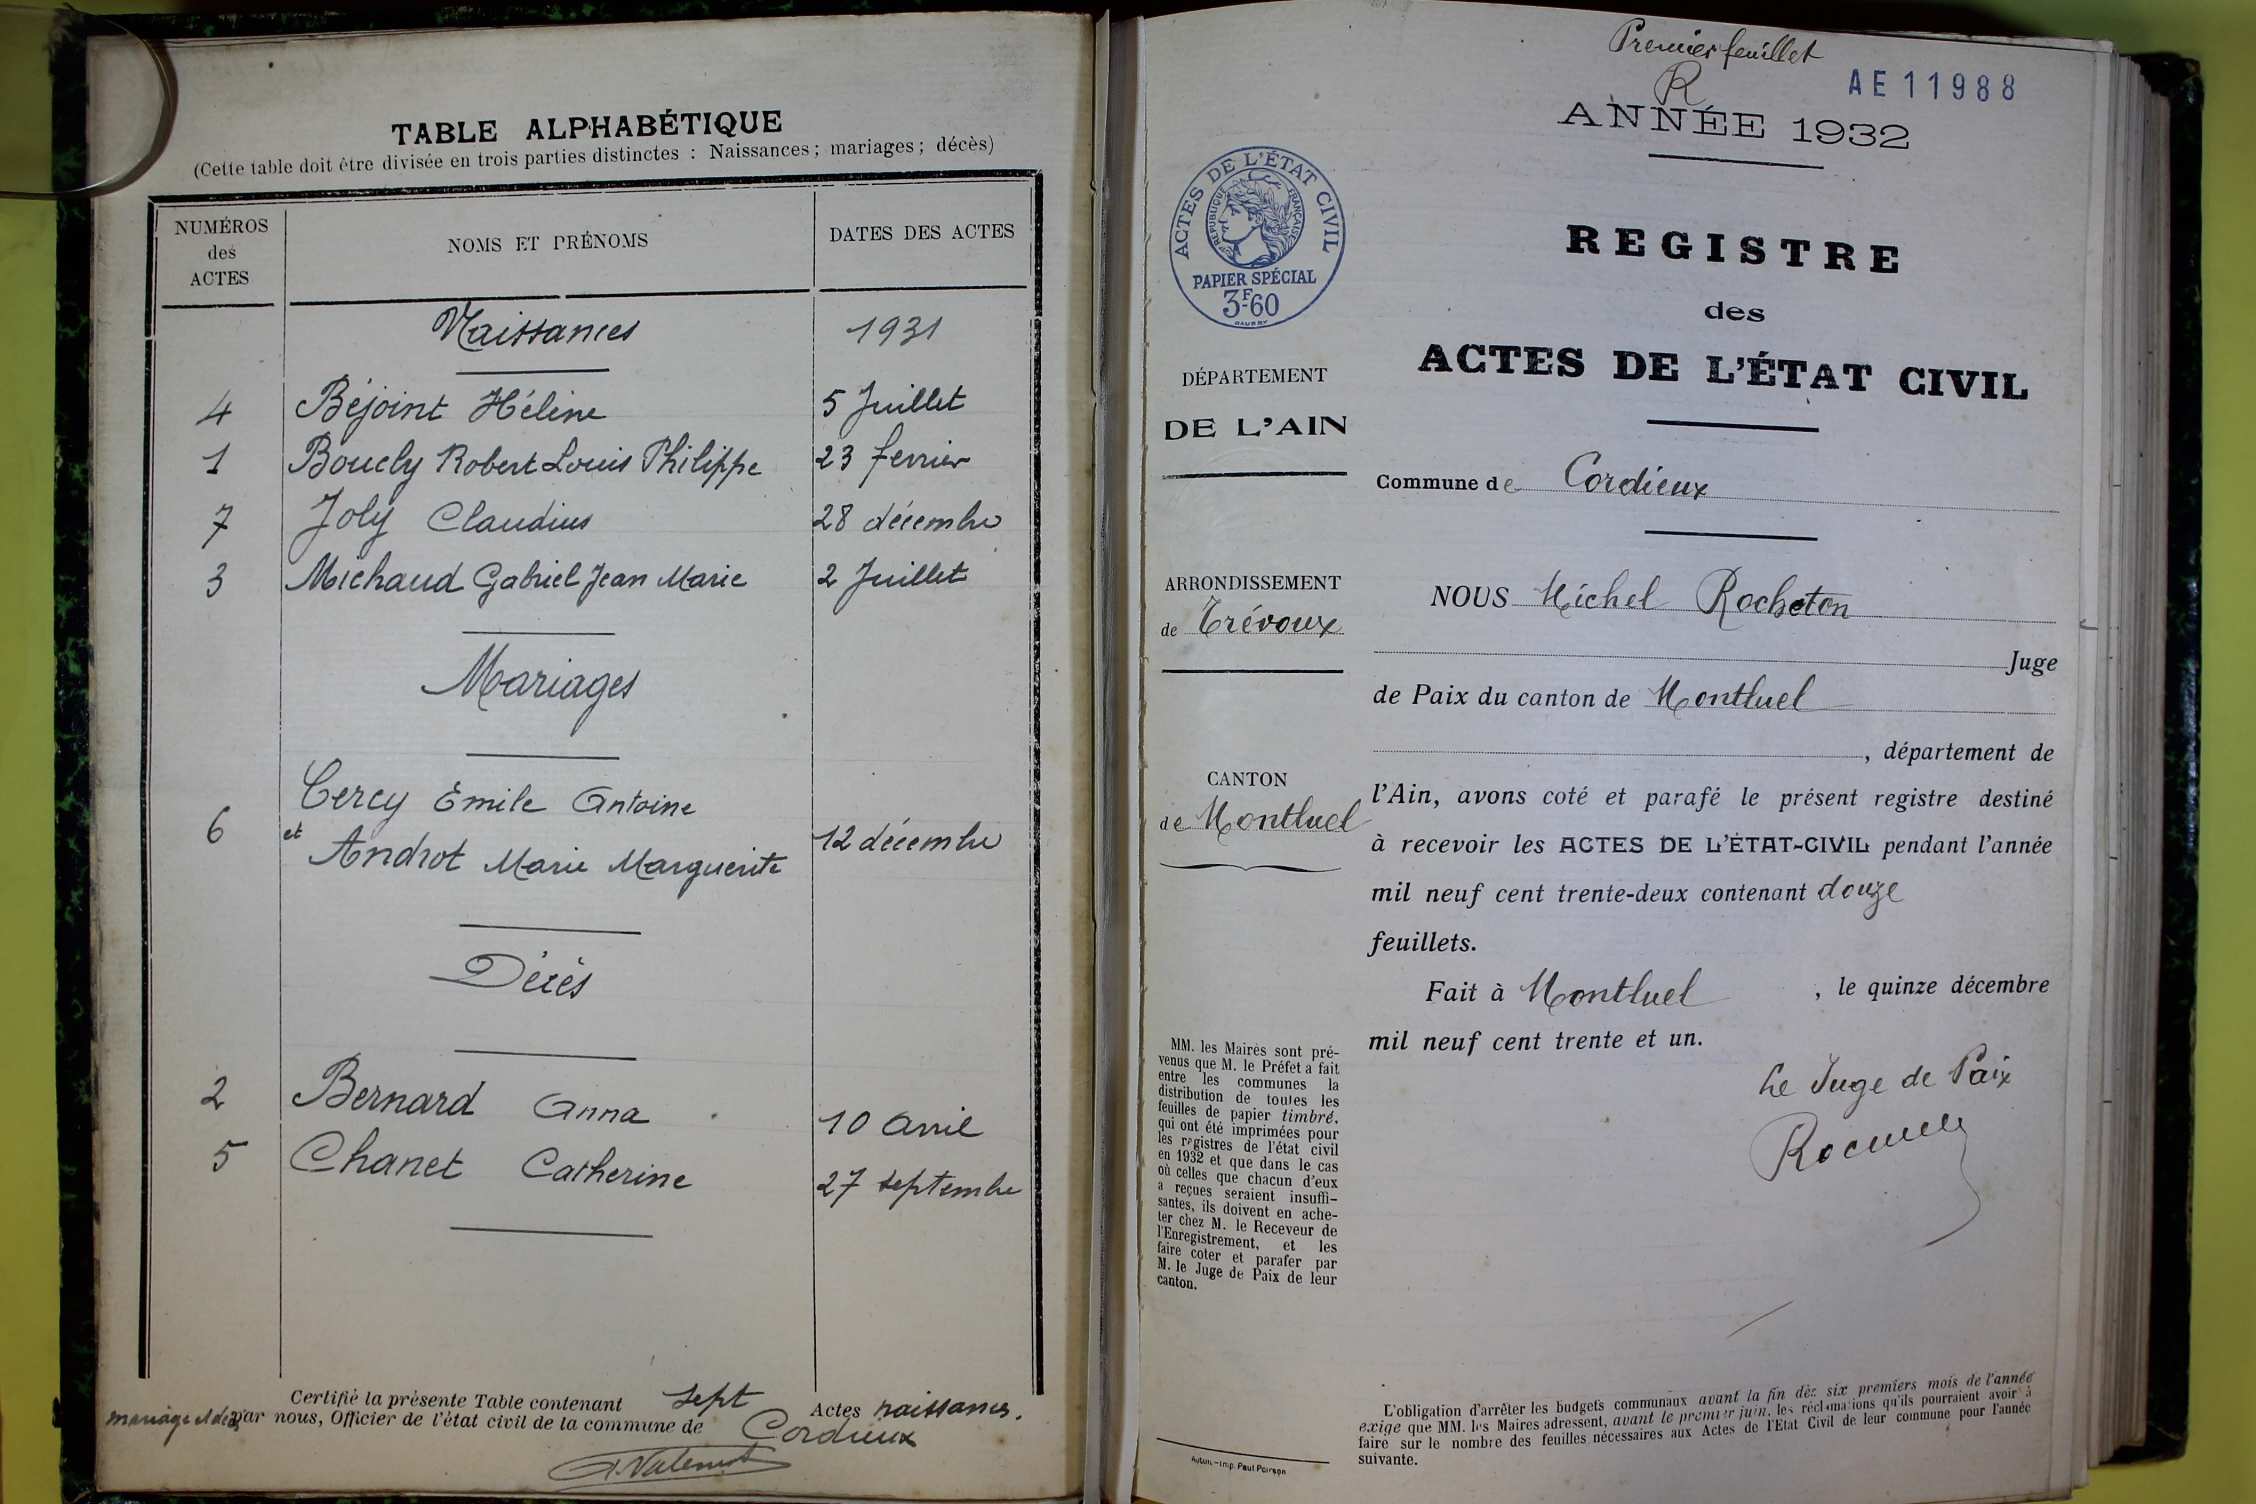 TABLE ALPHABÉTIQUE
(Cette table doit être divisée en trois parties distinctes : Naissances ; mariages ; décès)
NUMÉROS
des
ACTES
NOMS ET PRÉNOMS
DATES DES ACTES
Naissances 1931
4 Béjoint Hélène 5 Juillet
1 Boucly Robert Louis Philippe 23 fevrier
7 Joly Claudius 28 décembre
3 Michaud Gabriel Jean Marie 2 Juillet
Mariages
Cercy Emile Antoine
6 et 12 décembre
Androt Marie Marguerite
Décès
2 Bernard Anna 10 avril
5 Chanet Catherine 27 septembre
Certifié la présente Table contenant sept Actes naissances,
mariage et décès par nous, Officier de l'état civil de la commune de Cordieux
Premier feuillet
R
AE 11988
ANNÉE 1932
ACTES DE L'ÉTAT CIVIL
RÉPUBLIQUE FRANÇAISE
PAPIER SPÉCIAL
3F60
REGISTRE
des
ACTES DE L'ÉTAT CIVIL
DÉPARTEMENT
DE L'AIN
ARRONDISSEMENT
de Trévoux
CANTON
de Montluel
MM. les Maires sont pré-
venus que M. le Préfet a fait
entre les communes la
distribution de toutes les
feuilles de papier timbré,
qui ont été imprimées pour
les registres de l'état civil
en 1932 et que dans le cas
où celles que chacun d'eux
a reçues seraient insuffi-
santes, ils doivent en ache-
ter chez M. le Receveur de
l'Enregistrement, et les
faire coter et parafer par
M. le Juge de Paix de leur
canton.
Autun.-Imp. Paul Poirson
Commune de Cordieux
NOUS Michel Rocheton
Juge
de Paix du canton de Montluel
, département de
l'Ain, avons coté et parafé le présent registre destiné
à recevoir les ACTES DE L'ÉTAT-CIVIL pendant l'année
mil neuf cent trente-deux contenant douze
feuillets.
Fait à Montluel, le quinze décembre
mil neuf cent trente et un.
Le Juge de Paix
L'obligation d'arrêter les budgets communaux avant la fin des six premiers mois de l'année
exige que MM. les Maires adressent, avant le premier juin, les réclamations qu'ils pourraient avoir à
faire sur le nombre des feuilles nécessaires aux Actes de l'Etat Civil de leur commune pour l'année
suivante.